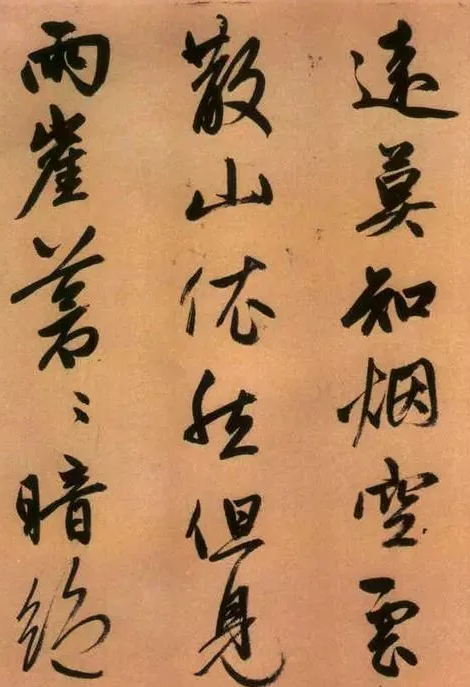 遠莫知烟空雲
散山依然但見
兩崖蒼〻暗絶